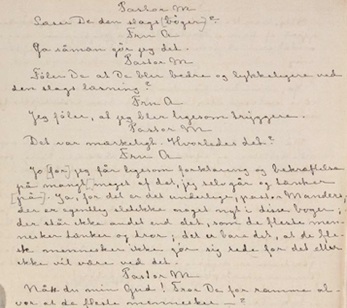 Pastor M
Læser De den slags [bøger]?
Fru A
Ja såmæn gør jeg det.
Pastor M
Føler De at De blir bedre og lykkeligere ved
den slags læsning?
Fru A
Jeg føler, at jeg blir ligesom tryggere.
Pastor M
Det var mærkeligt. Hvorledes det?
Fru A
Jo [for] jeg får ligesom forklaring og bekræftelse
på mangt [ ] meget af det, jeg selv går og tænker
[på]. Ja, for det er det underlige, pastor Manders,
der er egentlig slet ikke noget nyt i disse bøger;
der står ikke andet end det, som de fleste men-
nesker tænker og tror; det er bare det, at de fle-
ste mennesker ikke gør sig rede for det eller
ikke vil være ved det.
Pastor M
Nå du min Gud! Tror De for ramme al-
vor at de fleste mennesker —?